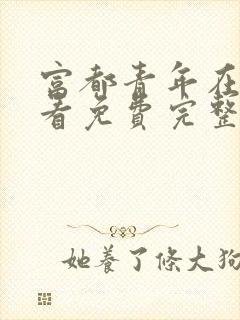 富都青年在
看免費完整
她養了條大狗